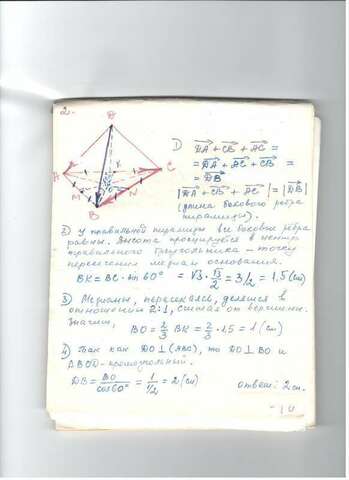 2.
D
A
B
C
K
M
N
O
1) DA + CB + AC =
= DA + AC + CB =
= DB
|DA + CB + AC| = |DB|
(длина бокового ребра
пирамиды).
2) У правильной пирамиды все боковые ребра
равны. Высота проецируется в центр
правильного треугольника – точку
пересечения медиан основания.
BK = BC · sin 60° = √3 · √3/2 = 3/2 = 1,5 (см)
3) Медианы, пересекаясь, делятся в
отношении 2:1, считая от вершины.
Значит,
BO = 2/3 BK = 2/3 · 1,5 = 1 (см)
4) Так как DO ⊥ (ABC), то DO ⊥ BO и
△BOD – прямоугольный.
DB = BO/cos60° = 1/(1/2) = 2 (см)
Ответ: 2 см.